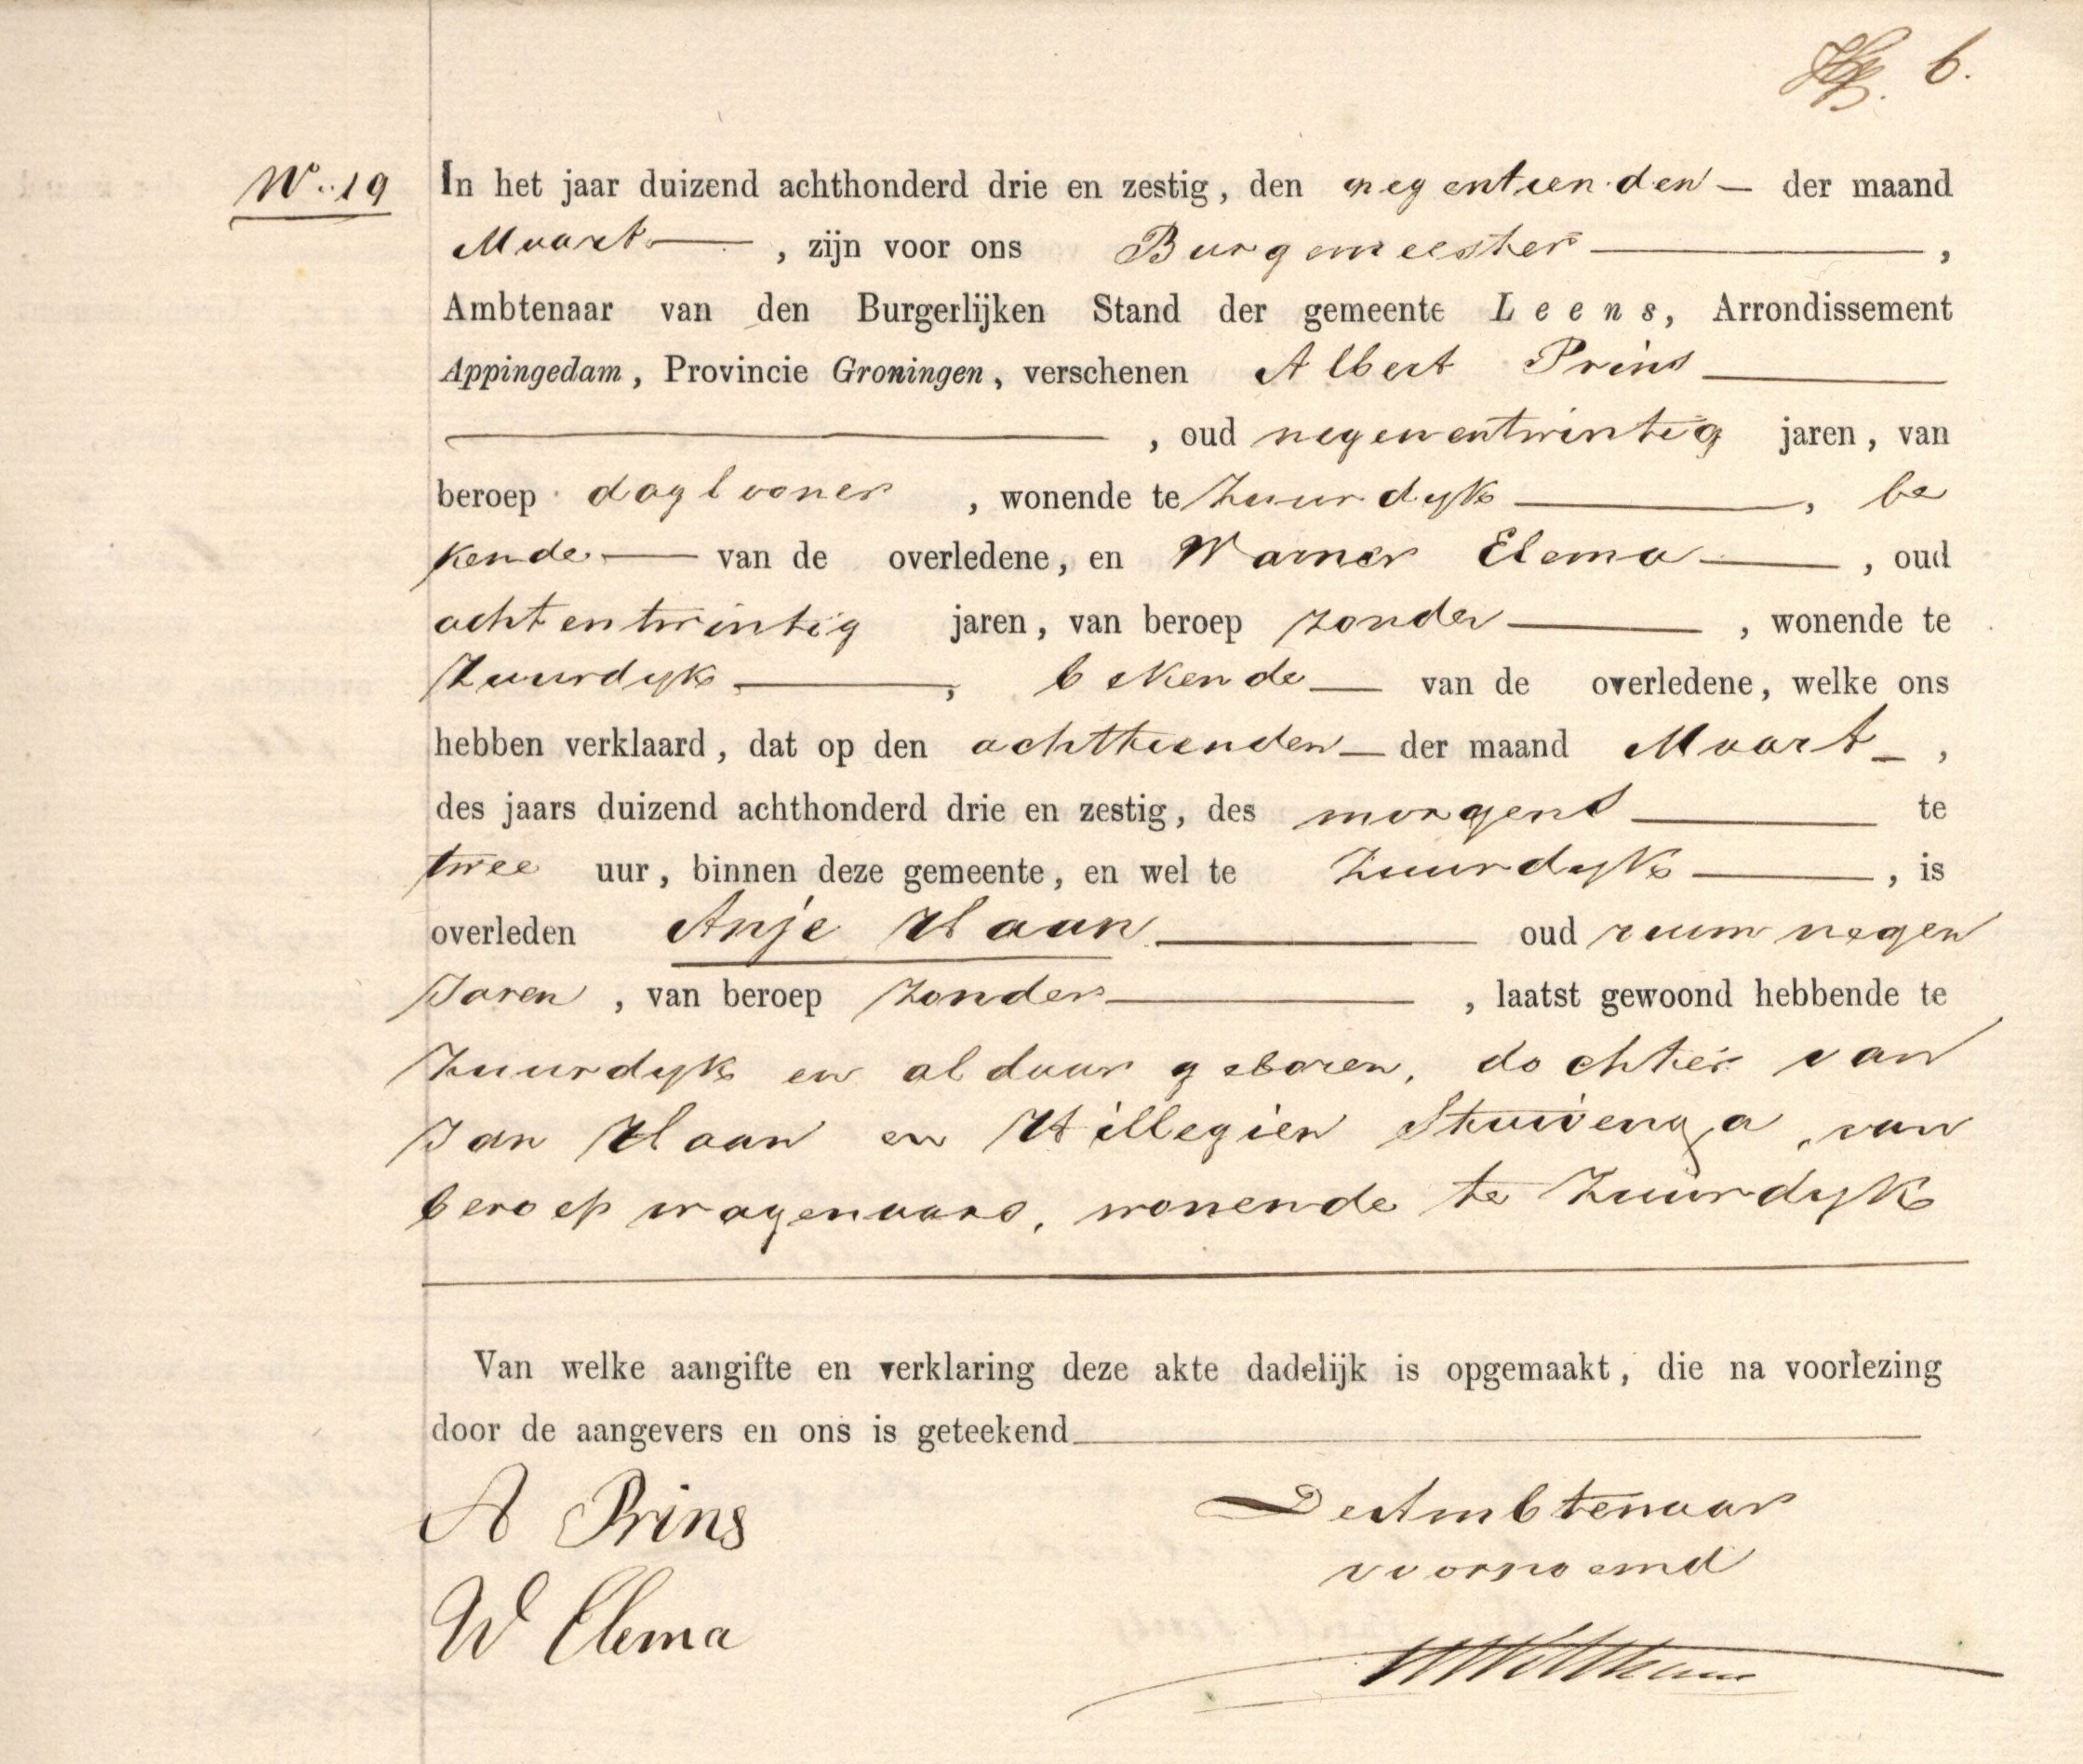 6.
No. 19
In het jaar duizend achthonderd drie en zestig, den negentienden — der maand
Maart —, zijn voor ons Burgemeester —,
Ambtenaar van den Burgerlijken Stand der gemeente Leens, Arrondissement
Appingedam, Provincie Groningen, verschenen Albert Prins —
—, oud negenentwintig jaren, van
beroep dagloner, wonende te Zuurdyk —, be
kende — van de overledene, en Warner Elema —, oud
achtentwintig jaren, van beroep zonder —, wonende te
Zuurdyk —, bekende — van de overledene, welke ons
hebben verklaard, dat op den achttienden — der maand Maart —,
des jaars duizend achthonderd drie en zestig, des morgens — te
twee uur, binnen deze gemeente, en wel te Zuurdyk —, is
overleden Anje Haan — oud ruim negen
Jaren, van beroep zonder —, laatst gewoond hebbende te
Zuurdyk en aldaar geboren, dochter van
Jan Haan en Hillegien Stuivenga, van
beroep wagenaars, wonende te Zuurdyk
Van welke aangifte en verklaring deze akte dadelijk is opgemaakt, die na voorlezing
door de aangevers en ons is geteekend
A Prins
De Ambtenaar
voornoemd
W Elema